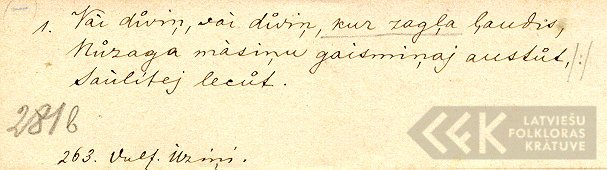 1. Vai důviņ, vai důviņ, kur zagļa ļaudis,
Nůzaga màsiņu gaismiņaj austůt, :/:
Saùlitej lecůt.
281b
263. Vulf. Uziņi.
LATVIEŠU
FOLKLORAS
KRĀTUVE